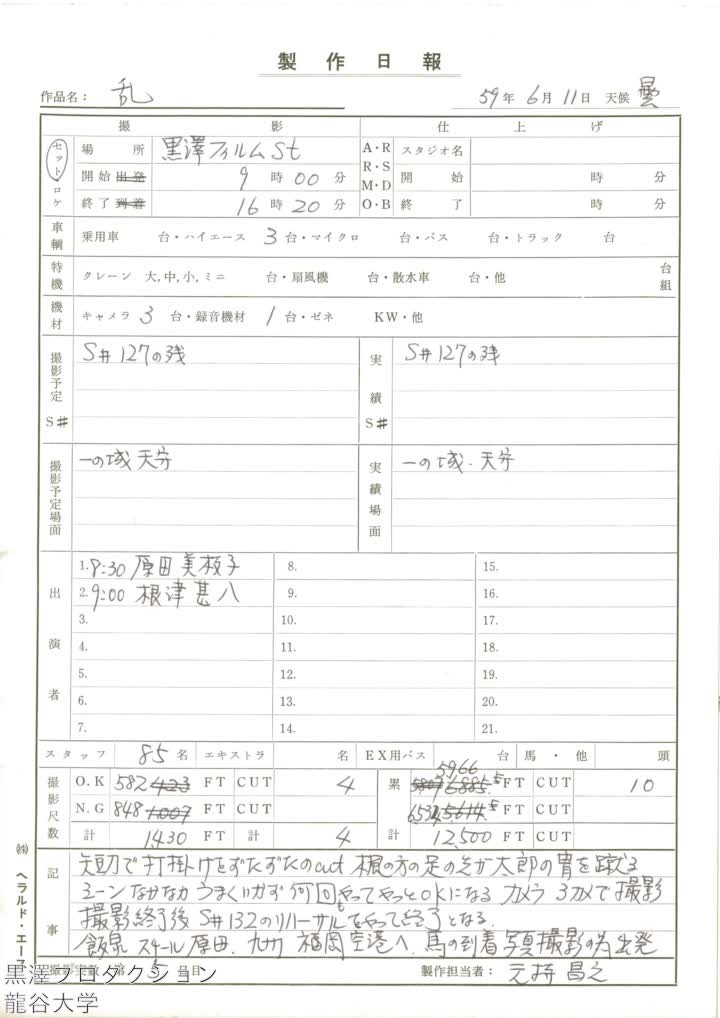 製作日報
作品名： 乱 59年 6月 11日 天候 曇
撮影 仕上げ
セット・ロケ 場所 黒澤フィルムSt A・R R・S M・D O・B スタジオ名
開始 出発 9時 00分 開始 時 分
終了 到着 16時 20分 終了 時 分
車輌 乗用車 台・ハイエース 3台・マイクロ 台・バス 台・トラック 台
特機 クレーン 大,中,小,ミニ 台・扇風機 台・散水車 台・他 台組
機材 キャメラ 3台・録音機材 1台・ゼネ KW・他
撮影予定S# S#127の残 実績S# S#127の残
撮影予定場面 一の城 天守 実績場面 一の城・天守
出演者
1. 8:30 原田美枝子 8. 15.
2. 9:00 根津甚八 9. 16.
3. 10. 17.
4. 11. 18.
5. 12. 19.
6. 13. 20.
7. 14. 21.
スタッフ 85名 エキストラ 名 EX用バス 台 馬・他 頭
撮影尺数 O.K 582 423 FT CUT 4 累 5966 FT CUT 10
N.G 848 1007 FT CUT FT CUT
計 1430 FT 計 4 計 12,500 FT CUT
記事
短刀で打掛けをずたずたのcut 根の方の足の先が太郎の冑を蹴る
シーンなかなかうまくいかず何回もやってやっとOKになる カメラ 3カメで撮影
撮影終了後 S#132のリハーサルをやって終了となる.
飯泉 スチール原田. 九州 福岡空港へ. 馬の到着写真撮影の為出発
撮影実数 第 5 日目 製作担当者： 元持昌之
㈱ ヘラルド・エース
黒澤プロダクション
龍谷大学